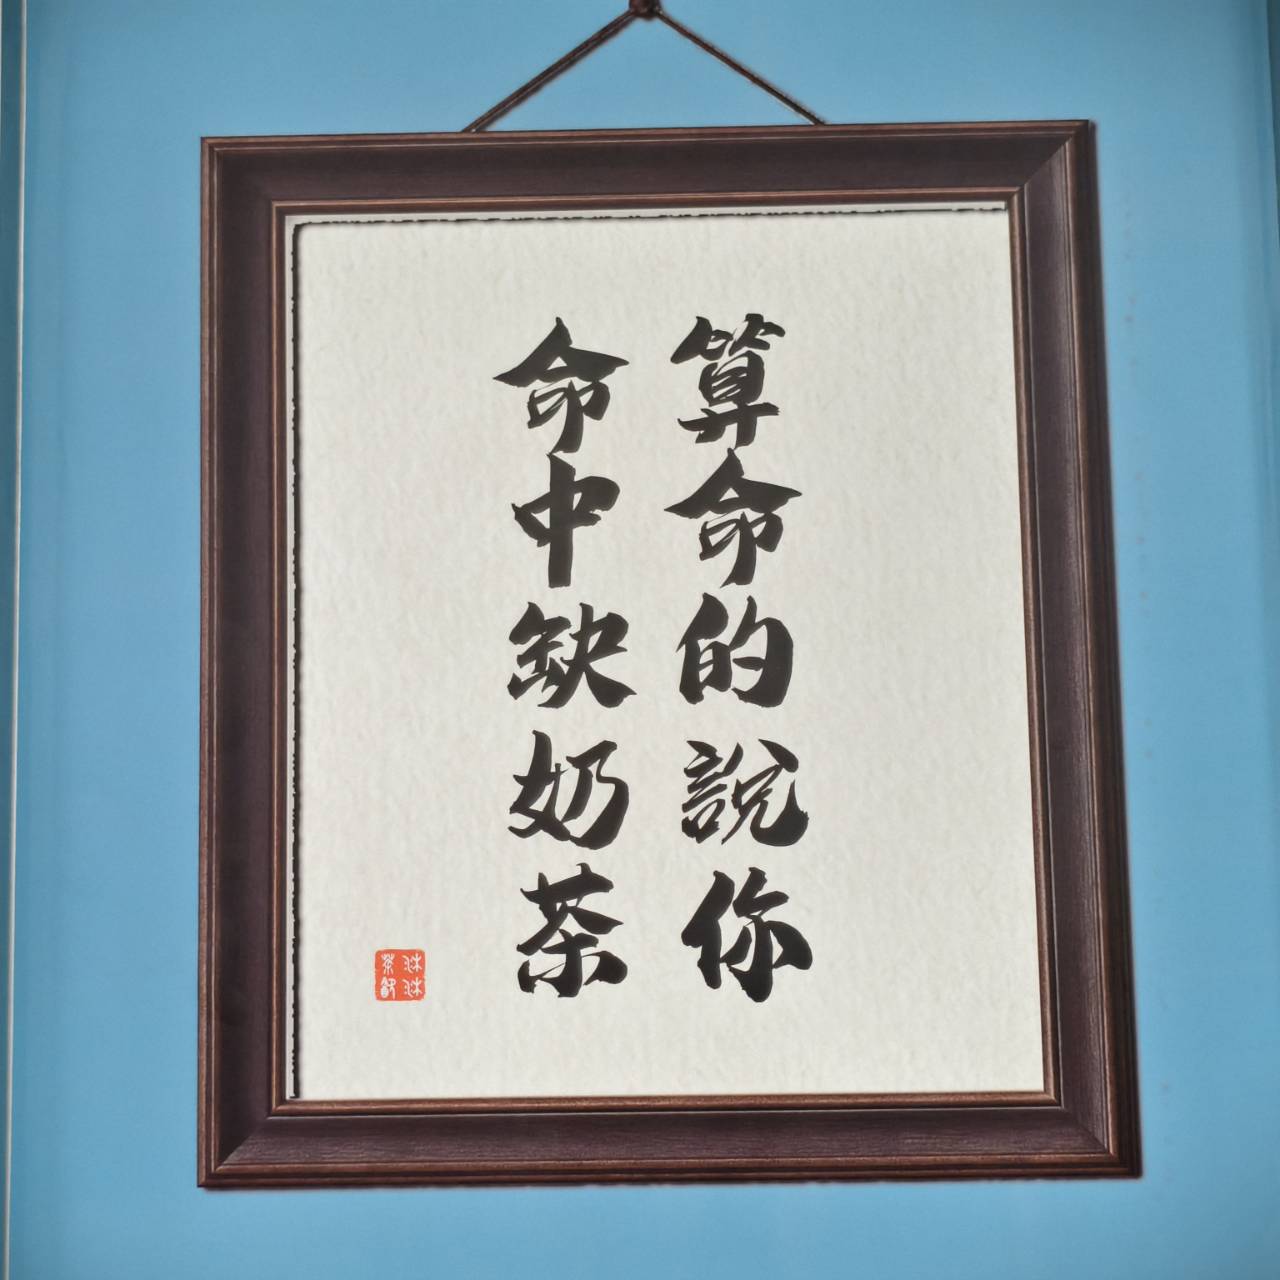 算命的說你
命中缺奶茶